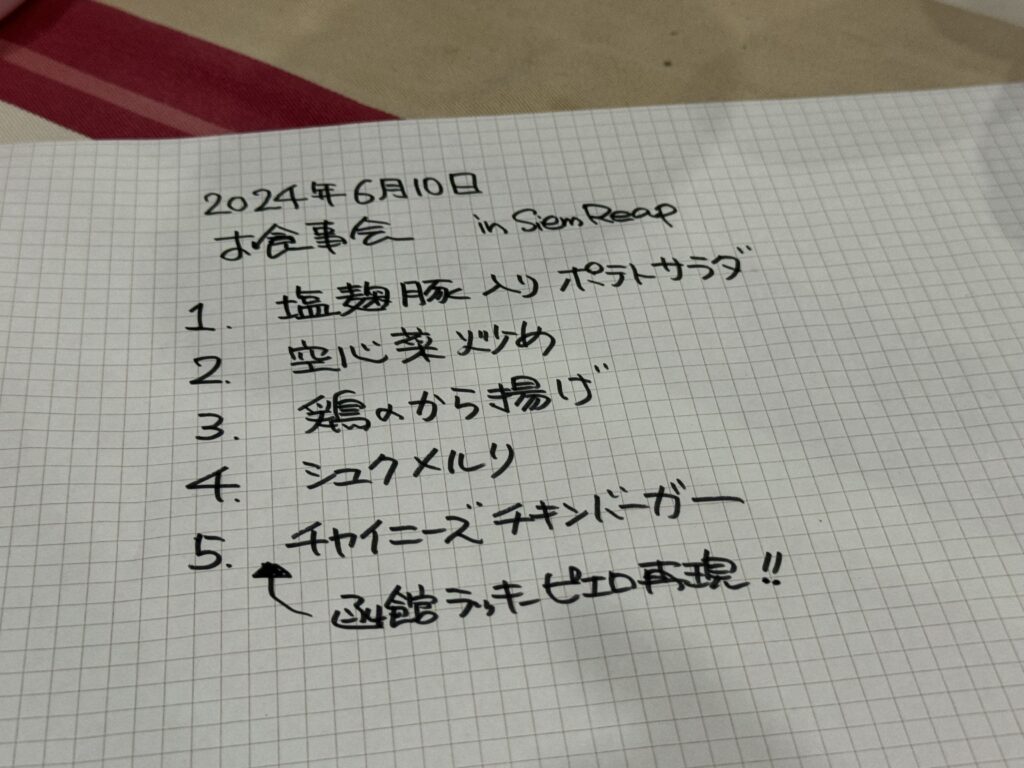 2024年6月10日
お食事会 in Siem Reap
1. 塩麹豚入りポテトサラダ
2. 空心菜炒め
3. 鶏のから揚げ
4. シュクメルリ
5. チャイニーズチキンバーガー
函館ラッキーピエロ再現!!